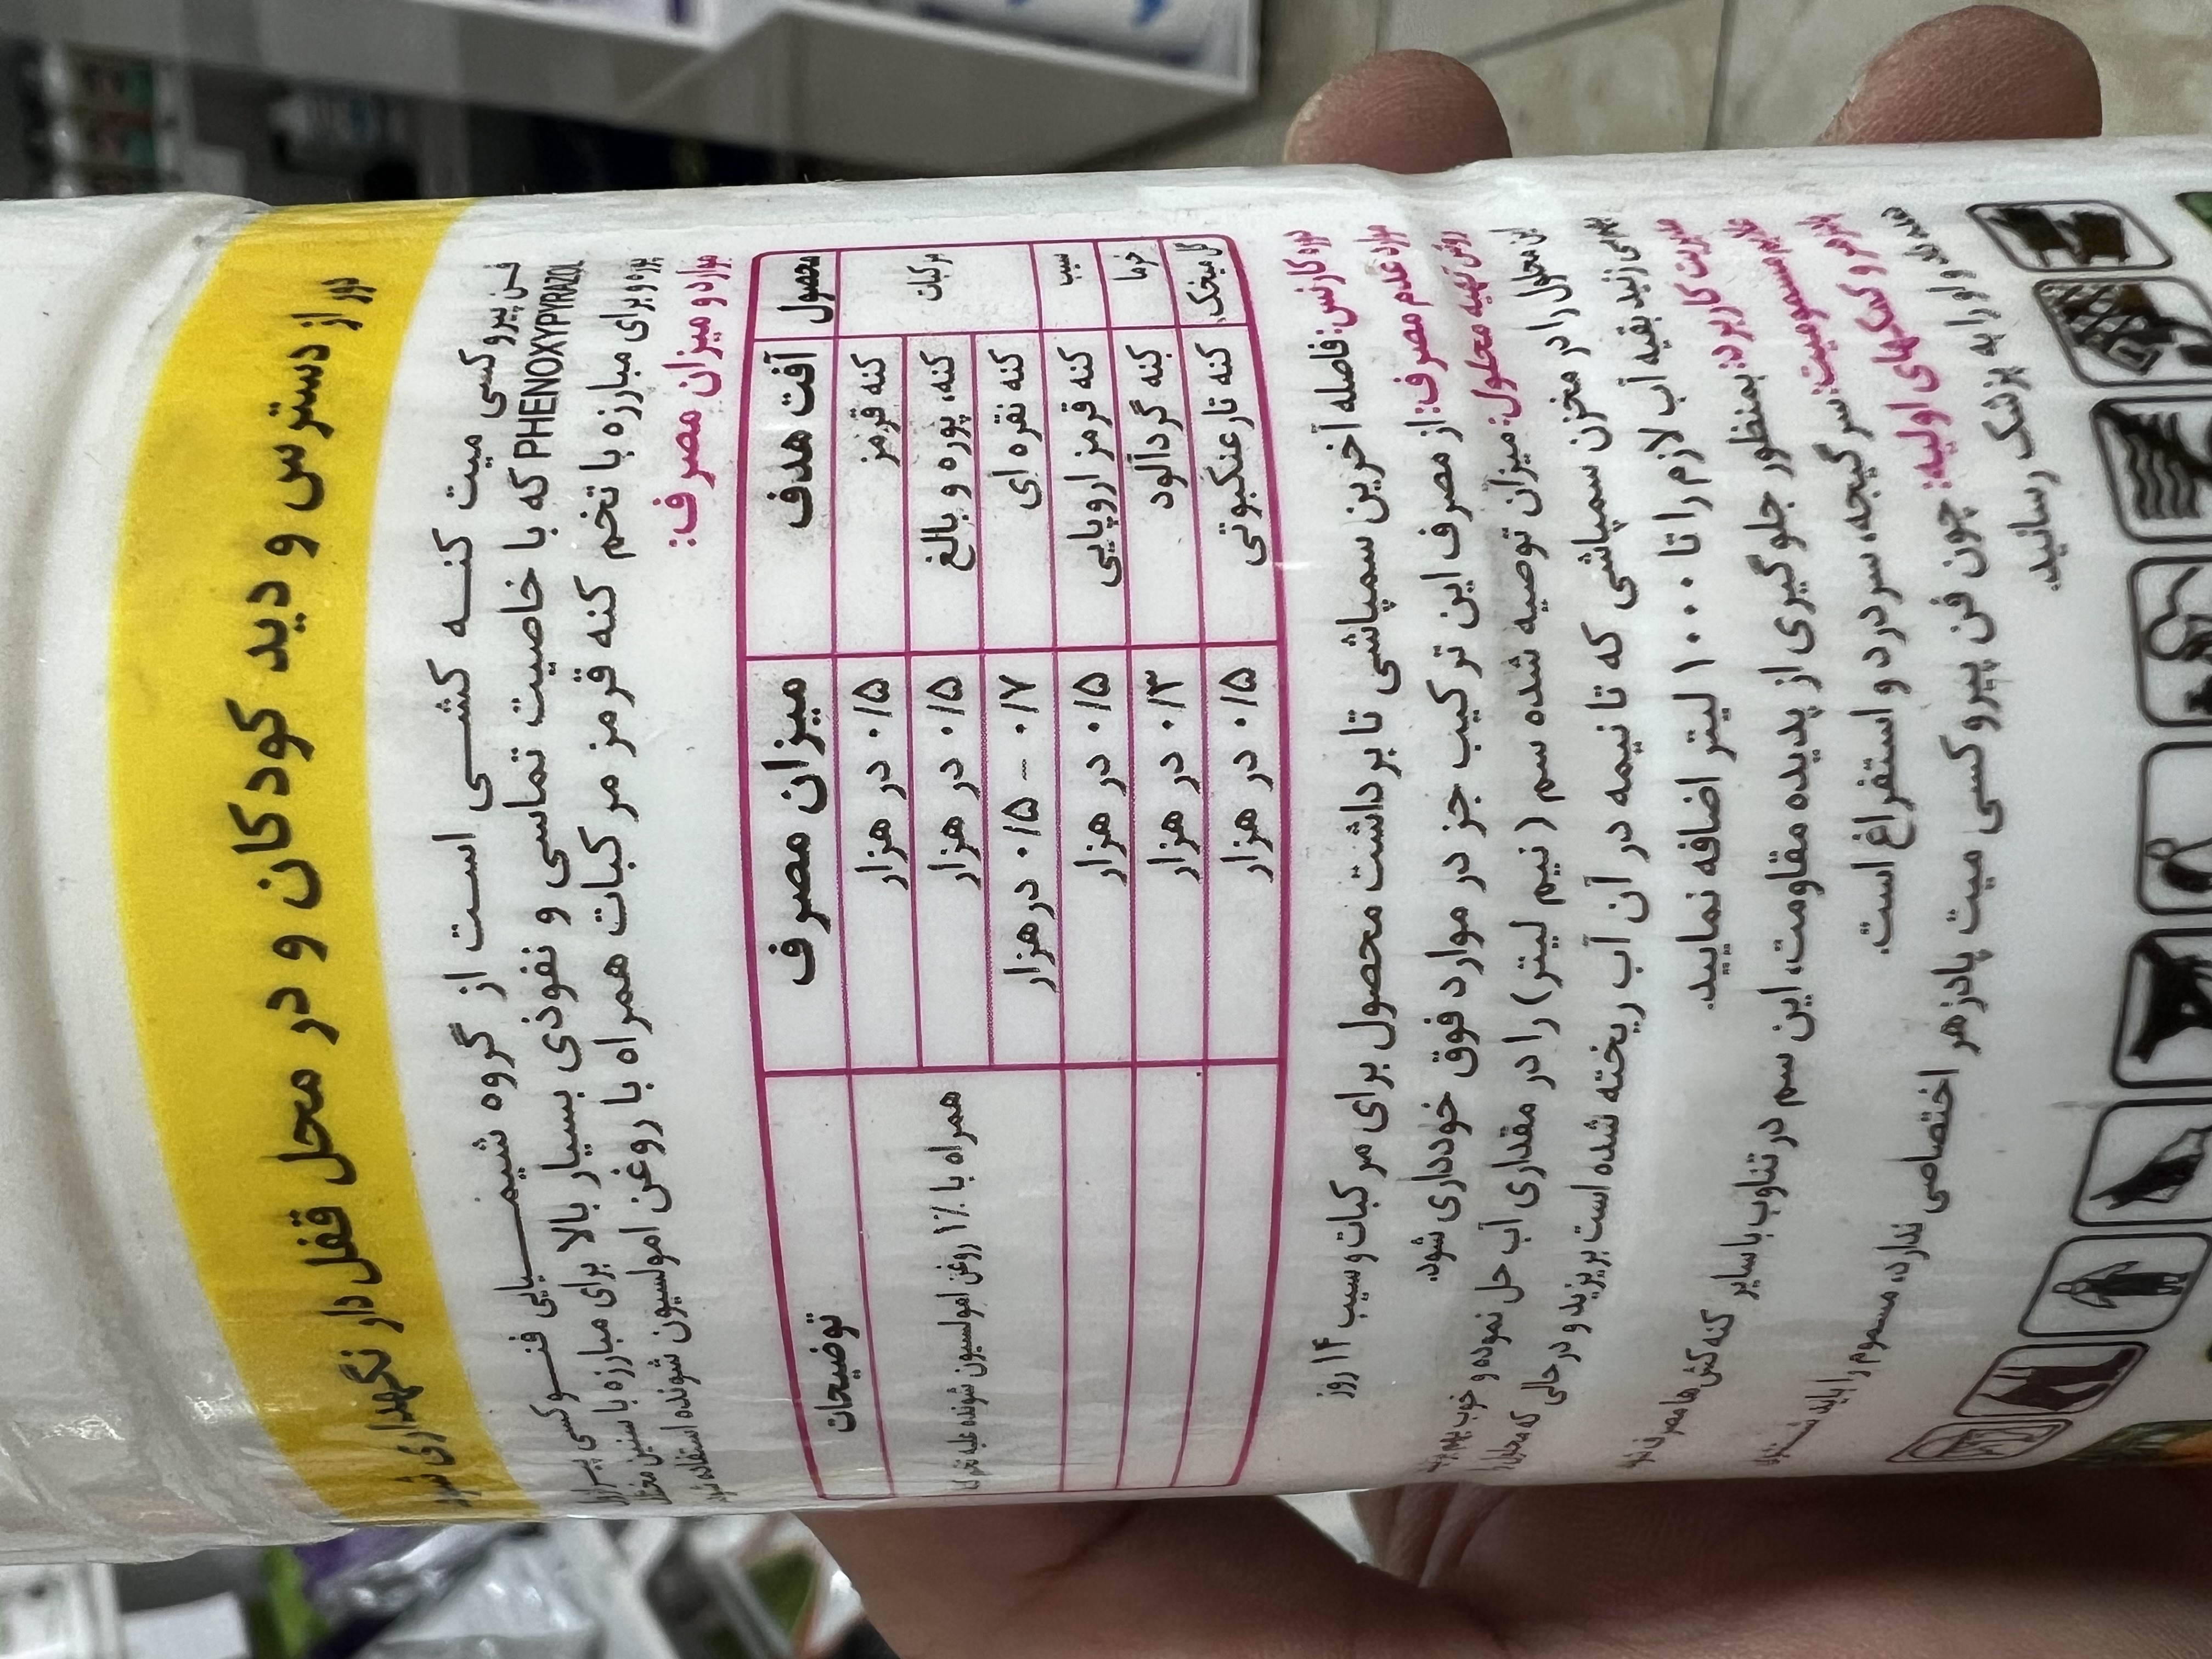 دور از دسترس و دید کودکان و در محل قفل دار نگهداری شود
فن پیروکسی میت کنه کشی است از گروه شیمیایی فنوکسی پیرازول
PHENOXYPYRAZOL که با خاصیت تماسی و نفوذی بسیار بالا برای مبارزه با سنین مختلف
پوره و برای مبارزه با تخم کنه قرمز مرکبات همراه با روغن امولسیون شونده استفاده شود
موارد و میزان مصرف:
محصول آفت هدف میزان مصرف توضیحات
مرکبات کنه قرمز ۰/۵ در هزار
کنه، پوره و بالغ ۰/۵ در هزار همراه با ۱٪ روغن امولسیون شونده علیه تخم
کنه نقره ای ۰/۵ – ۰/۷ در هزار
سیب کنه قرمز اروپایی ۰/۵ در هزار
خرما کنه گردآلود ۰/۳ در هزار
گل میخک کنه تارعنکبوتی ۰/۵ در هزار
دوره کارنس: فاصله آخرین سمپاشی تا برداشت محصول برای مرکبات و سیب ۱۴ روز
موارد عدم مصرف: از مصرف این ترکیب جز در موارد فوق خودداری شود.
روش تهیه محلول: میزان توصیه شده سم (نیم لیتر) را در مقداری آب حل نموده و خوب بهم بزنید
این محلول را در مخزن سمپاشی که تا نیمه در آن آب ریخته شده است بریزید و در حالی که محلول را
بهم می زنید بقیه آب لازم را تا ۱۰۰۰ لیتر اضافه نمایید.
مدیریت کاربرد: بمنظور جلوگیری از پدیده مقاومت، این سم در تناوب با سایر کنه کش ها مصرف
علایم مسمومیت: سرگیجه، سردرد و استفراغ است.
پادزهر و کمکهای اولیه: چون فن پیروکسی میت پادزهر اختصاصی ندارد، مسموم را باید
معده و او را به پزشک رسانید.